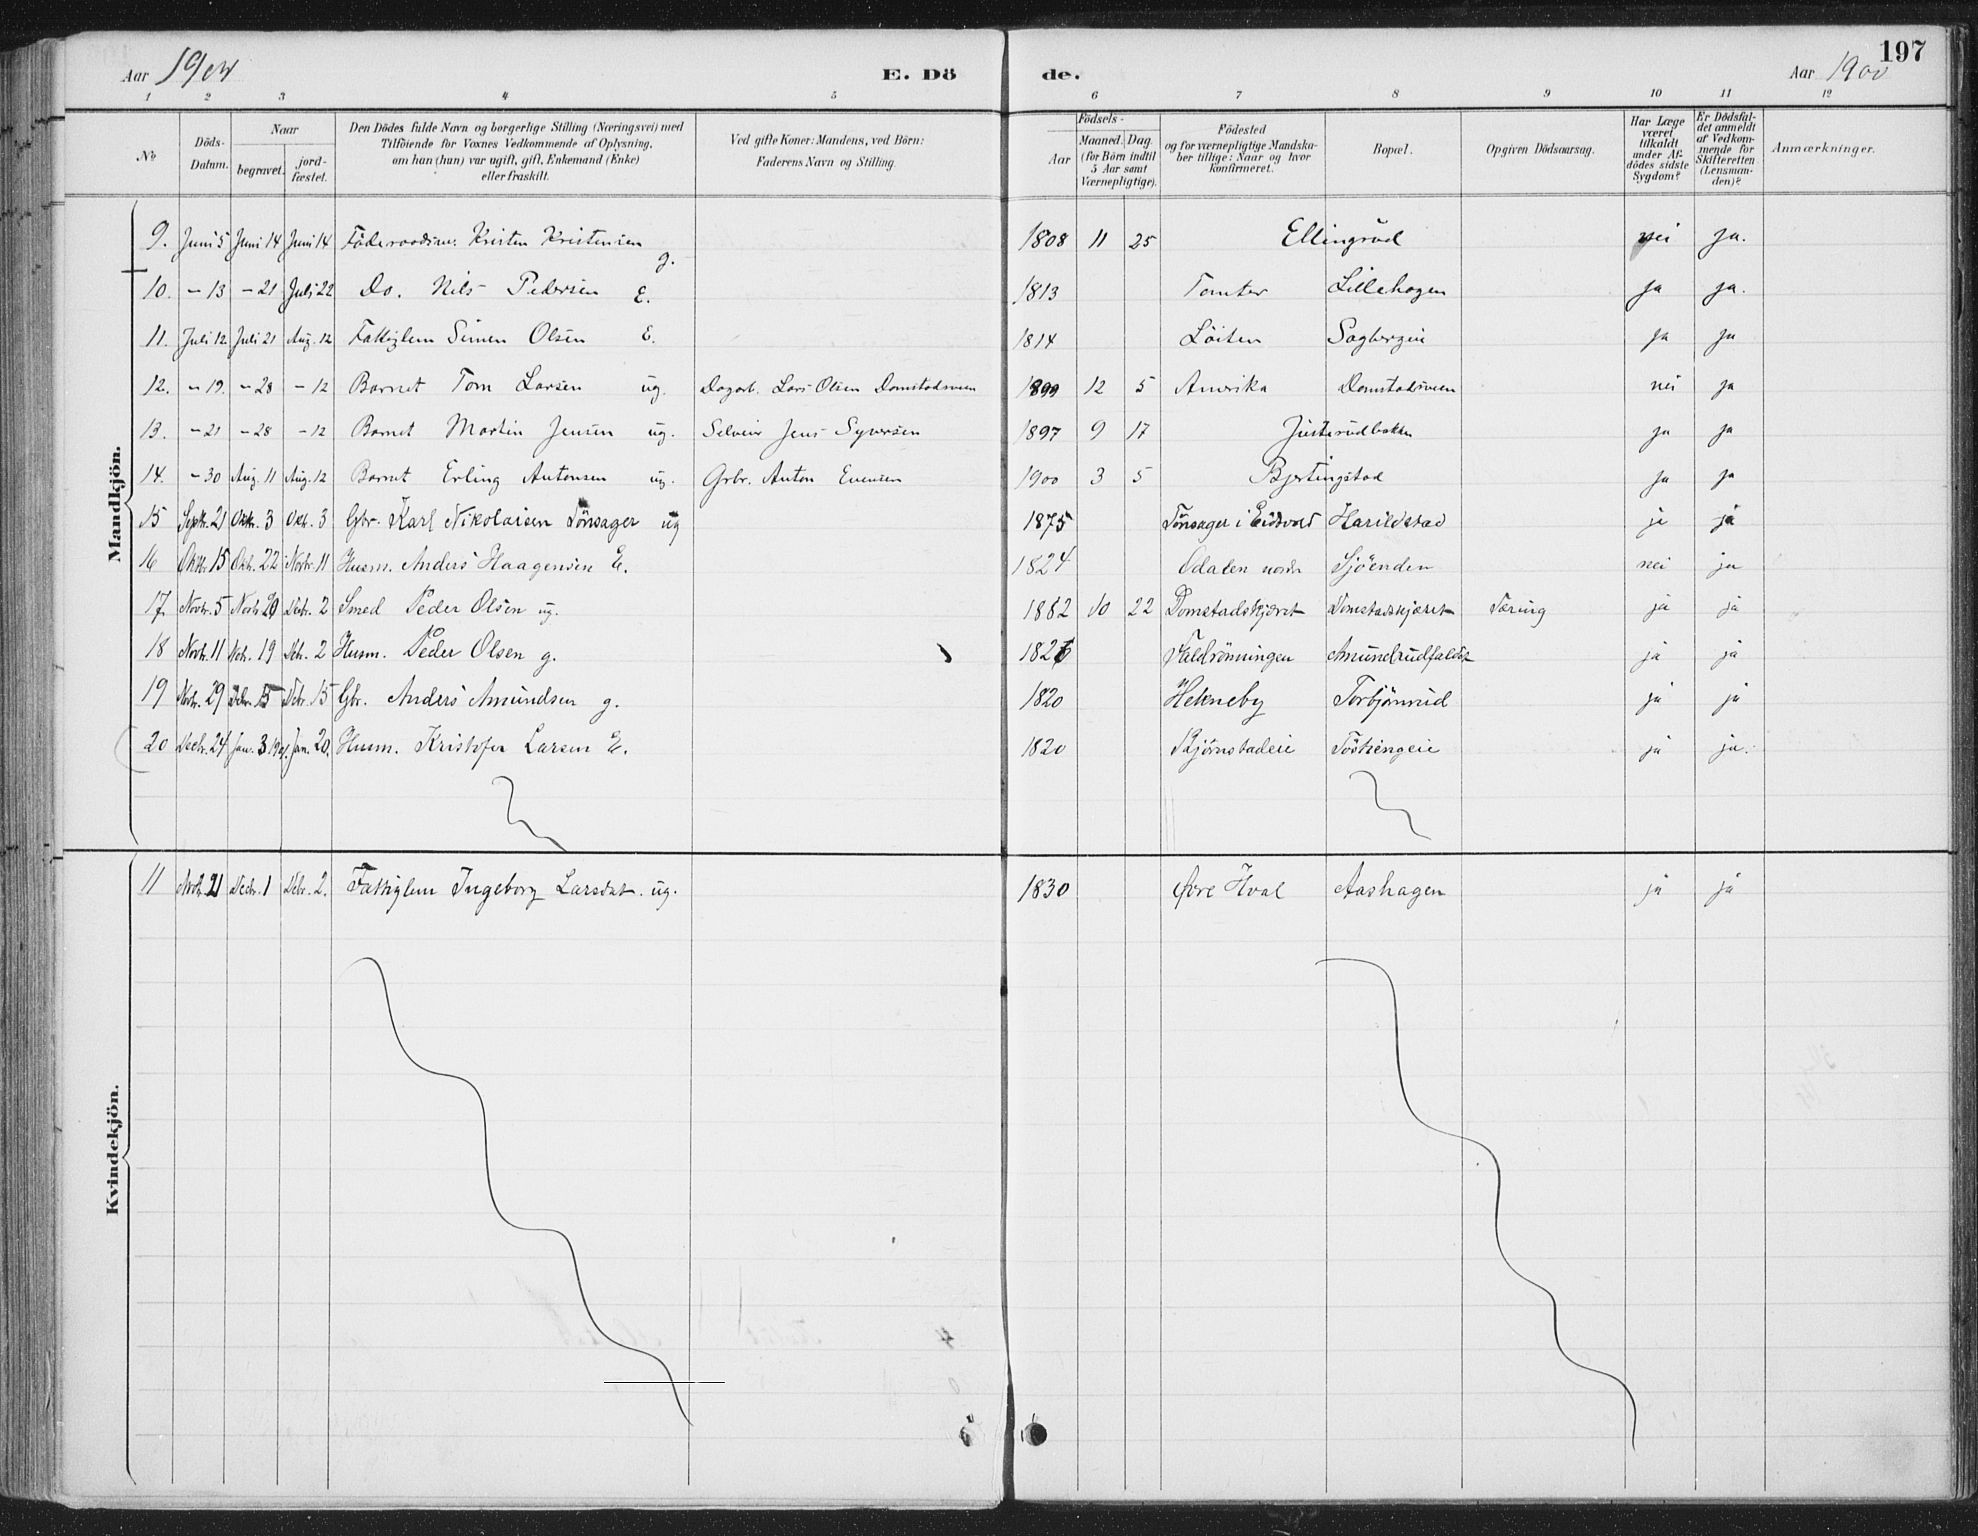 197
Aar 1900 E. Dö de. Aar 1900
1 2 3 4 5 6 7 8 9 10 11 12
No Döds-Datum. Naar begravet. jord-fæstet. Den Dödes fulde Navn og borgerlige Stilling (Næringsvei) med Tilföiende for Voxnes Vedkommende af Oplysning, om han (hun) var ugift, gift, Enkemand (Enke) eller fraskilt. Ved gifte Koner: Mandens, ved Börn: Faderens Navn og Stilling. Födsels- Aar Maaned. Dag. (for Börn indtil 5 Aar samt Værnepligtige). Födested og for værnepligtige Mandskaber tillige: Naar og hvor konfirmeret. Bopæl. Opgiven Dödsaarsag. Har Læge været tilkaldt under Afdödes sidste Sygdom? Er Dödsfaldet anmeldt af Vedkommende for Skifteretten (Lensmanden)? Anmærkninger.
Mandkjön.
9. Juni 5 Juni 14 Juni 14 Föderaadsm. Kristen Kristensen g. 1808 11 25 Ellingsrud nei ja.
10. - 13 - 21 Juli 22 Do. Nils Pedersen E. 1813 Tomter Lillehagen ja ja.
11. Juli 12 Juli 21 Aug. 12 Fattiglem Simen Olsen E. 1814 Löiten Sagbergeie ja ja
12. - 19. - 28 - 12 Barnet Tom Larsen ug. Dagarb. Lars Olsen Domstadsveen 1899 12 5 Amerika Domstadsveen nei ja
13. - 21 - 28 - 12 Barnet Martin Jensen ug. Selveier Jens Syversen 1897 9 17 Justerudbakken ja ja
14. - 30 Aug. 11 Aug. 12 Barnet Erling Antonsen ug. Grbr. Anton Evensen 1900 3 5 Bjertingstad ja ja
15 Septr. 21 Oktr. 3 Okt. 3 Gbr. Karl Nikolaisen Tönsager ug 1875 Tönsager i Eidsvold Harildstad ja ja
16 Oktr. 15 Oktr. 22 Novbr. 11 Husm. Anders Haagensen E. 1824 Odalen nordr Sjöenden nei ja
17. Novbr. 5 Novbr 20 Decbr. 2 Smed Peder Olsen ug. 1882 10 22 Domstadskjæret Domstadskjæret Tæring ja ja
18 Novbr. 11 Nobr. 19 Debr. 2 Husm. Peder Olsen g. 1826 Faldrönningen Amundrudfaldet ja ja
19 Novbr. 29 Debr. 15 Debr. 15 Gbr. Anders Amundsen g. 1820 Hekneby Torbjörnrud ja ja
20 Decbr. 24 Jan. 3 1901. Jan. 20. Husm. Kristofer Larsen E. 1820 Bjørnstadeie Töstiengeie ja ja.
Kvindekjön.
11 Novbr. 21 Decbr. 1 Debr. 2. Fattiglem Ingeborg Larsdat. ug. 1830 Øvre Hval Aashagen ja ja